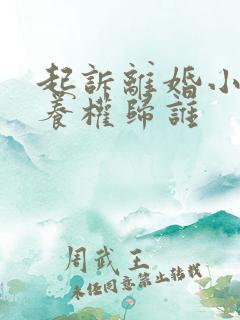 起訴離婚小
養權歸誰
周武王
未經同意禁止轉載